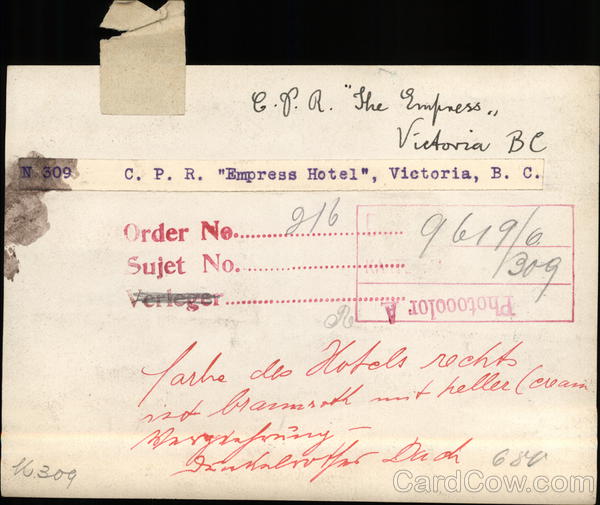 C.P.R. "The Empress"
Victoria BC
N 309 C. P. R. "Empress Hotel", Victoria, B. C.
Order No. 216
Sujet No.
Verleger
9619/6
/309
Photocolor A
R
farbe des Hotels rechts
ist braunroth mit heller (cream
Verziehrung –
Dunkelrother Dach
680
N309
CardCow.com